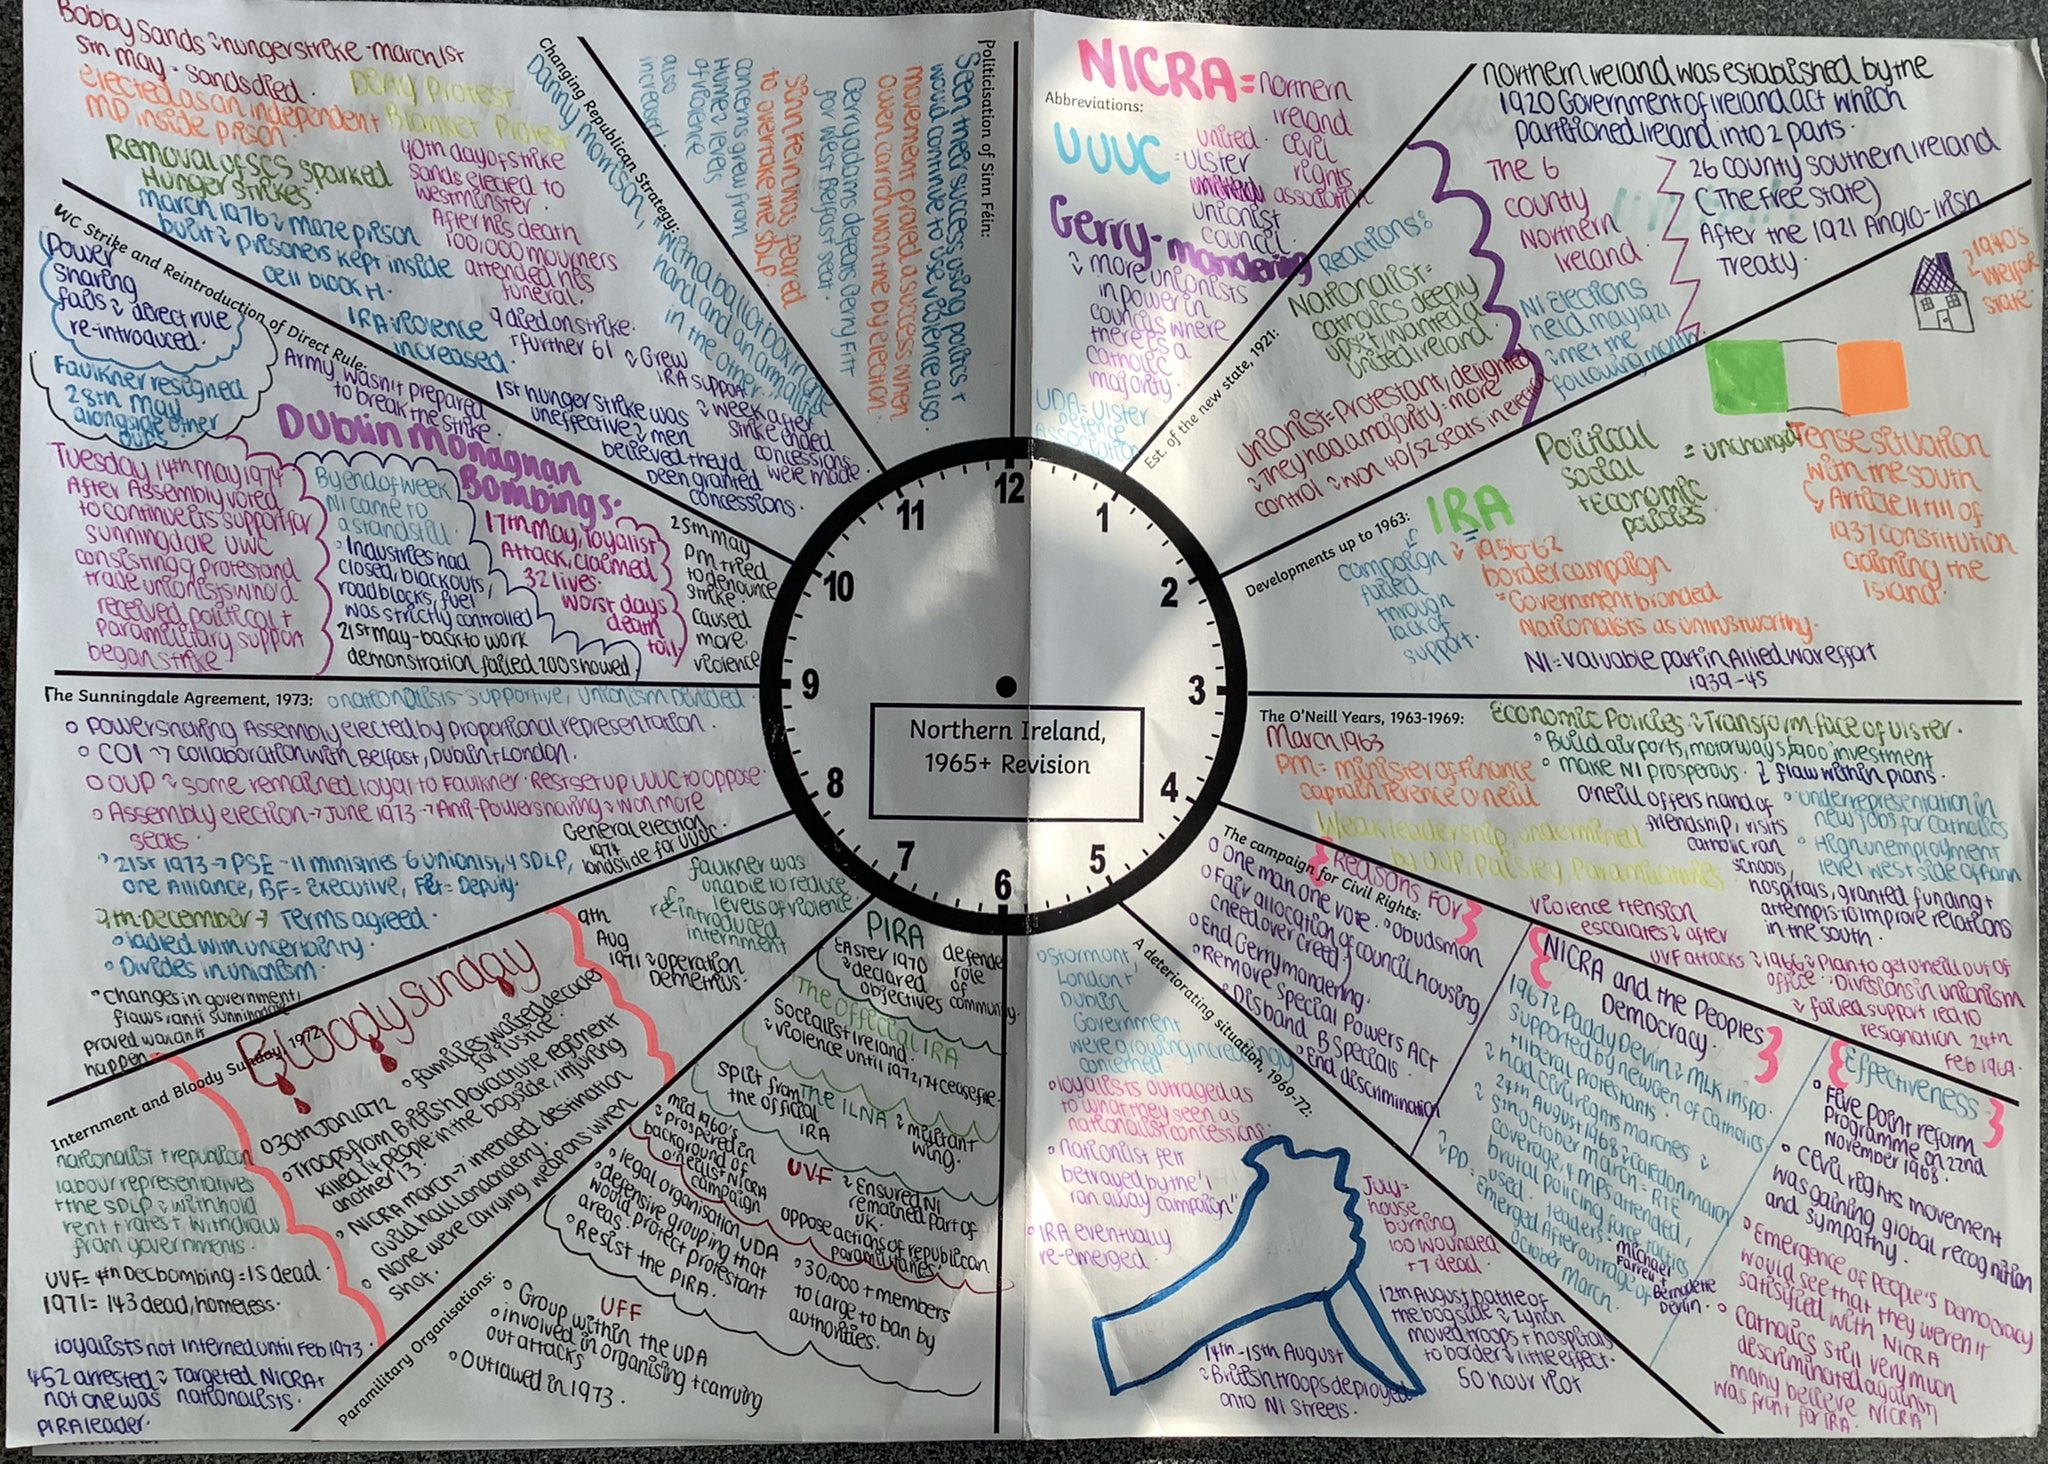 NICRA = Northern
Ireland
Civil
rights
association
Abbreviations:
UUUC = United
Ulster
Unionist
Council.
Gerry-mandering
↓ more unionists
in power in
councils where
there's a
catholic
majority.
UDA = Ulster
Defence
Association
Est. of the new state, 1921:
Northern Ireland was established by the
1920 Government of Ireland act which
partitioned Ireland into 2 parts.
The 6
county
Northern
Ireland.
26 county southern Ireland
(The free state)
After the 1921 Anglo-Irish
Treaty.
Reactions:
Nationalist=
Catholics deeply
upset, wanted a
united Ireland.
NI Elections
held may 1921
↓ met the
following month
Unionist = Protestant, delighted
↓ They had a majority = more
control ↓ won 40/52 seats in election
Developments up to 1963:
1940's
welfare
state
Political
Social
+ Economic
policies
= unchanged
Tense situation
with the south
↳ Article II + III of
1937 constitution
claiming the
island.
IRA
campaign
failed
through
lack of
support.
↓ 1956-62
border campaign
= Government branded
Nationalists as untrustworthy.
NI = valuable part in Allied war effort
1939-45
The O'Neill Years, 1963-1969:
March 1963
PM = minister of finance
Captain Terence O'Neill
Economic Policies ↓ Transform face of Ulster.
° Build airports, motorways, £900 investment
° make NI prosperous. ↓ flaw within plans.
° underrepresentation in
new jobs for catholics
° High unemployment
level west side of Bann
Weak leadership, undermined
by UUP, Paisley, Paramilitaries
O'Neill offers hand of
friendship, visits
catholic ran
schools,
hospitals, granted funding +
attempts to improve relations
in the south.
Violence + tension
escalates ↓ after
UVF attacks ↓ 1966 ↓ Plan to get O'Neill out of
office. ° Divisions in unionism
↓ failed support led to
resignation 24th
Feb 1969.
The campaign for Civil Rights:
Reasons For
° One man one vote. ° Obudsman
° Fair allocation of council housing
(need over creed)
° End Gerrymandering.
° Remove Special Powers Act
° Disband B Specials.
° End discrimination
NICRA and the Peoples
Democracy.
1967 ↓ Paddy Devlin ↓ MLK inspo.
supported by new gen of Catholics
+ liberal protestants.
↓ had civil rights marches ↓
↓ 24th August 1968 ↓ Caledon march
↓ 5th October march = RTE
coverage, 4 MPs attended,
brutal policing, force tactics
used.
↓ PD = leaders = Michael
Farrell +
Bernadette
Devlin.
° Emerged After outrage of
October march.
Effectiveness
• Five point reform
Programme on 22nd
November 1968.
• Civil rights movement
was gaining global recognition
and sympathy.
• Emergence of People's Democracy
would see that they weren't
satisfied with NICRA
° Catholics still very much
discriminated against
many believe NICRA
was front for IRA.
A deteriorating situation, 1969-72:
° Stormont,
London +
Dublin
Government
were growing increasingly
concerned
° loyalists outraged as
to what they seen as
nationalist concessions.
° nationalist felt
betrayed by the 'I
ran away campaign"
° IRA eventually
re-emerged.
July =
house
burning
100 wounded
+ 7 dead.
12th August battle of
the bogside ↓ Lynch
moved troops + hospitals
to border ↓ little effect.
50 hour riot
14th-15th August
↓ British troops deployed
onto NI streets.
Paramilitary Organisations:
PIRA
Easter 1970
↓ declared
objectives
defende
role
of
community
The Official IRA
Socialist Ireland.
↓ violence until 1972, 74 ceasefire.
split from
the official
IRA
The ILNA ↓ militant
wing.
UVF
mid 1960's
↓ prospered in
background of
O'Neill + NICRA
campaign
↓ Ensured NI
remained part of
UK.
oppose actions of republican
paramilitaries.
UDA
° legal organisation
° defensive grouping that
would protect protestant
areas.
° Resist the PIRA.
° 30,000 + members
to large to ban by
authorities.
UFF
° Group within the UDA
° involved in organising + carrying
out attacks
° Outlawed in 1973.
Internment and Bloody Sunday 1972:
Faulkner was
unable to reduce
levels of violence.
re-introduced
internment
9th
Aug
1971 ↓ operation
Demetrius.
Bloody Sunday
° 30th Jan 1972
° families waited decades
for justice.
° Troops from British Parachute regiment
killed 14 people in the bogside, injuring
another 13.
° NICRA march → intended destination
Guildhall Londonderry.
° None were carrying weapons when
shot.
nationalist + republican
labour representatives
+ the SDLP ↓ withhold
rent + rates + withdraw
from governments.
UVF = 4th Dec bombing = 15 dead.
1971 = 143 dead, homeless.
loyalists not interned until Feb 1973.
452 arrested ↓ Targeted NICRA +
not one was nationalists.
PIRA leader.
The Sunningdale Agreement, 1973:
° nationalists - supportive, unionism divided
° Powersharing Assembly elected by proportional representation.
° COI → collaboration with Belfast, Dublin + London.
° OUP ↓ some remained loyal to Faulkner. Rest set up UUUC to oppose.
° Assembly election → June 1973 → Anti-Powersharing ↓ won more
seats.
General election
1974
landslide for UUUC
° 21st 1973 → PSE - 11 ministries - 6 unionist, 4 SDLP,
one Alliance, BF = Executive, Fitt = Deputy.
9th December → Terms agreed.
° ladled with uncertainty.
° Divides in unionism.
° Changes in government,
flaws, anti sunningdale
proved wouldn't
happen
WC Strike and Reintroduction of Direct Rule:
Power
sharing
fails ↓ direct rule
re-introduced.
Faulkner resigned
28th May
alongside other
OUP.
Army wasn't prepared
to break the strike.
Dublin Monaghan
Bombings.
Tuesday 14th may 1974
After Assembly voted
to continue its support for
sunningdale UWC
consisting of protestand
trade unionists who'd
received political +
paramilitary support
began strike.
By end of week
NI came to
a standstill.
° Industries had
closed, blackouts,
roadblocks, fuel
was strictly controlled
21st may - back to work
demonstration failed 200 showed.
17th May, loyalist
Attack, claimed
32 lives.
worst days
death
toll.
25th may
PM tried
to denounce
strike.
Caused
more
violence
Changing Republican Strategy:
Bobby Sands ↓ hungerstrike - march 1st
5th may - sands died.
elected as an independent
MP inside prison.
Dirty Protest
Blanket Protest
Removal of SCS sparked
Hunger strikes
40th day of strike
sands elected to
westminster.
After his death
100,000 mourners
attended his
funeral.
March 1976 ↓ maze prison
built ↓ prisoners kept inside
cell block H.
IRA violence
increased.
9 died on strike.
+ further 61
↓ Grew
IRA support
↓ week after
strike ended
concessions
were made
1st hunger strike was
uneffective ↓ men
believed they'd
been granted
concessions.
Danny morrison, 'with a ballot box in one
hand and an armalite
in the other.'
Politicisation of Sinn Féin:
Seen their success using politics +
would continue to use violence also.
movement proved a success when
Owen carron won the by election.
Gerry adams defeats Gerry Fitt
for West Belfast seat.
Sinn Fein was feared
to overtake the SDLP
concerns grew from
Hume ↓ levels
of violence
also
increased.
12
1
2
3
4
5
6
7
8
9
10
11
Northern Ireland,
1965+ Revision